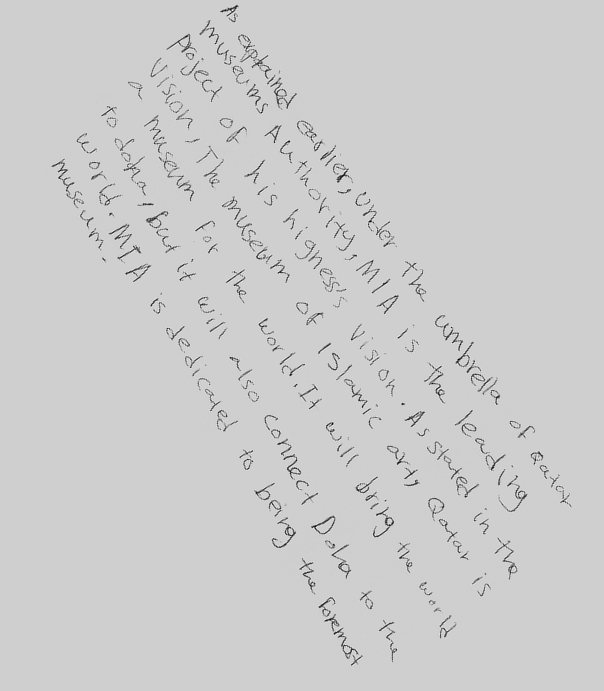 As explained earlier, under the umbrella of Qatar
museums Authority, MIA is the leading
project of his highness's vision. As stated in the
Vision, The museum of Islamic art, Qatar is
a museum for the world. It will bring the world
to doha, but it will also connect Doha to the
world. MIA is dedicated to being the foremost
museum.